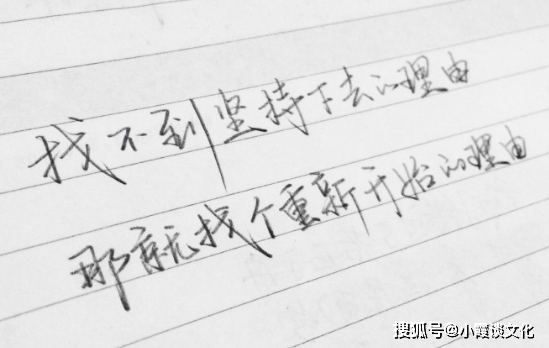 找不到坚持下去的理由
那就找个重新开始的理由
搜狐号@小霞谈文化